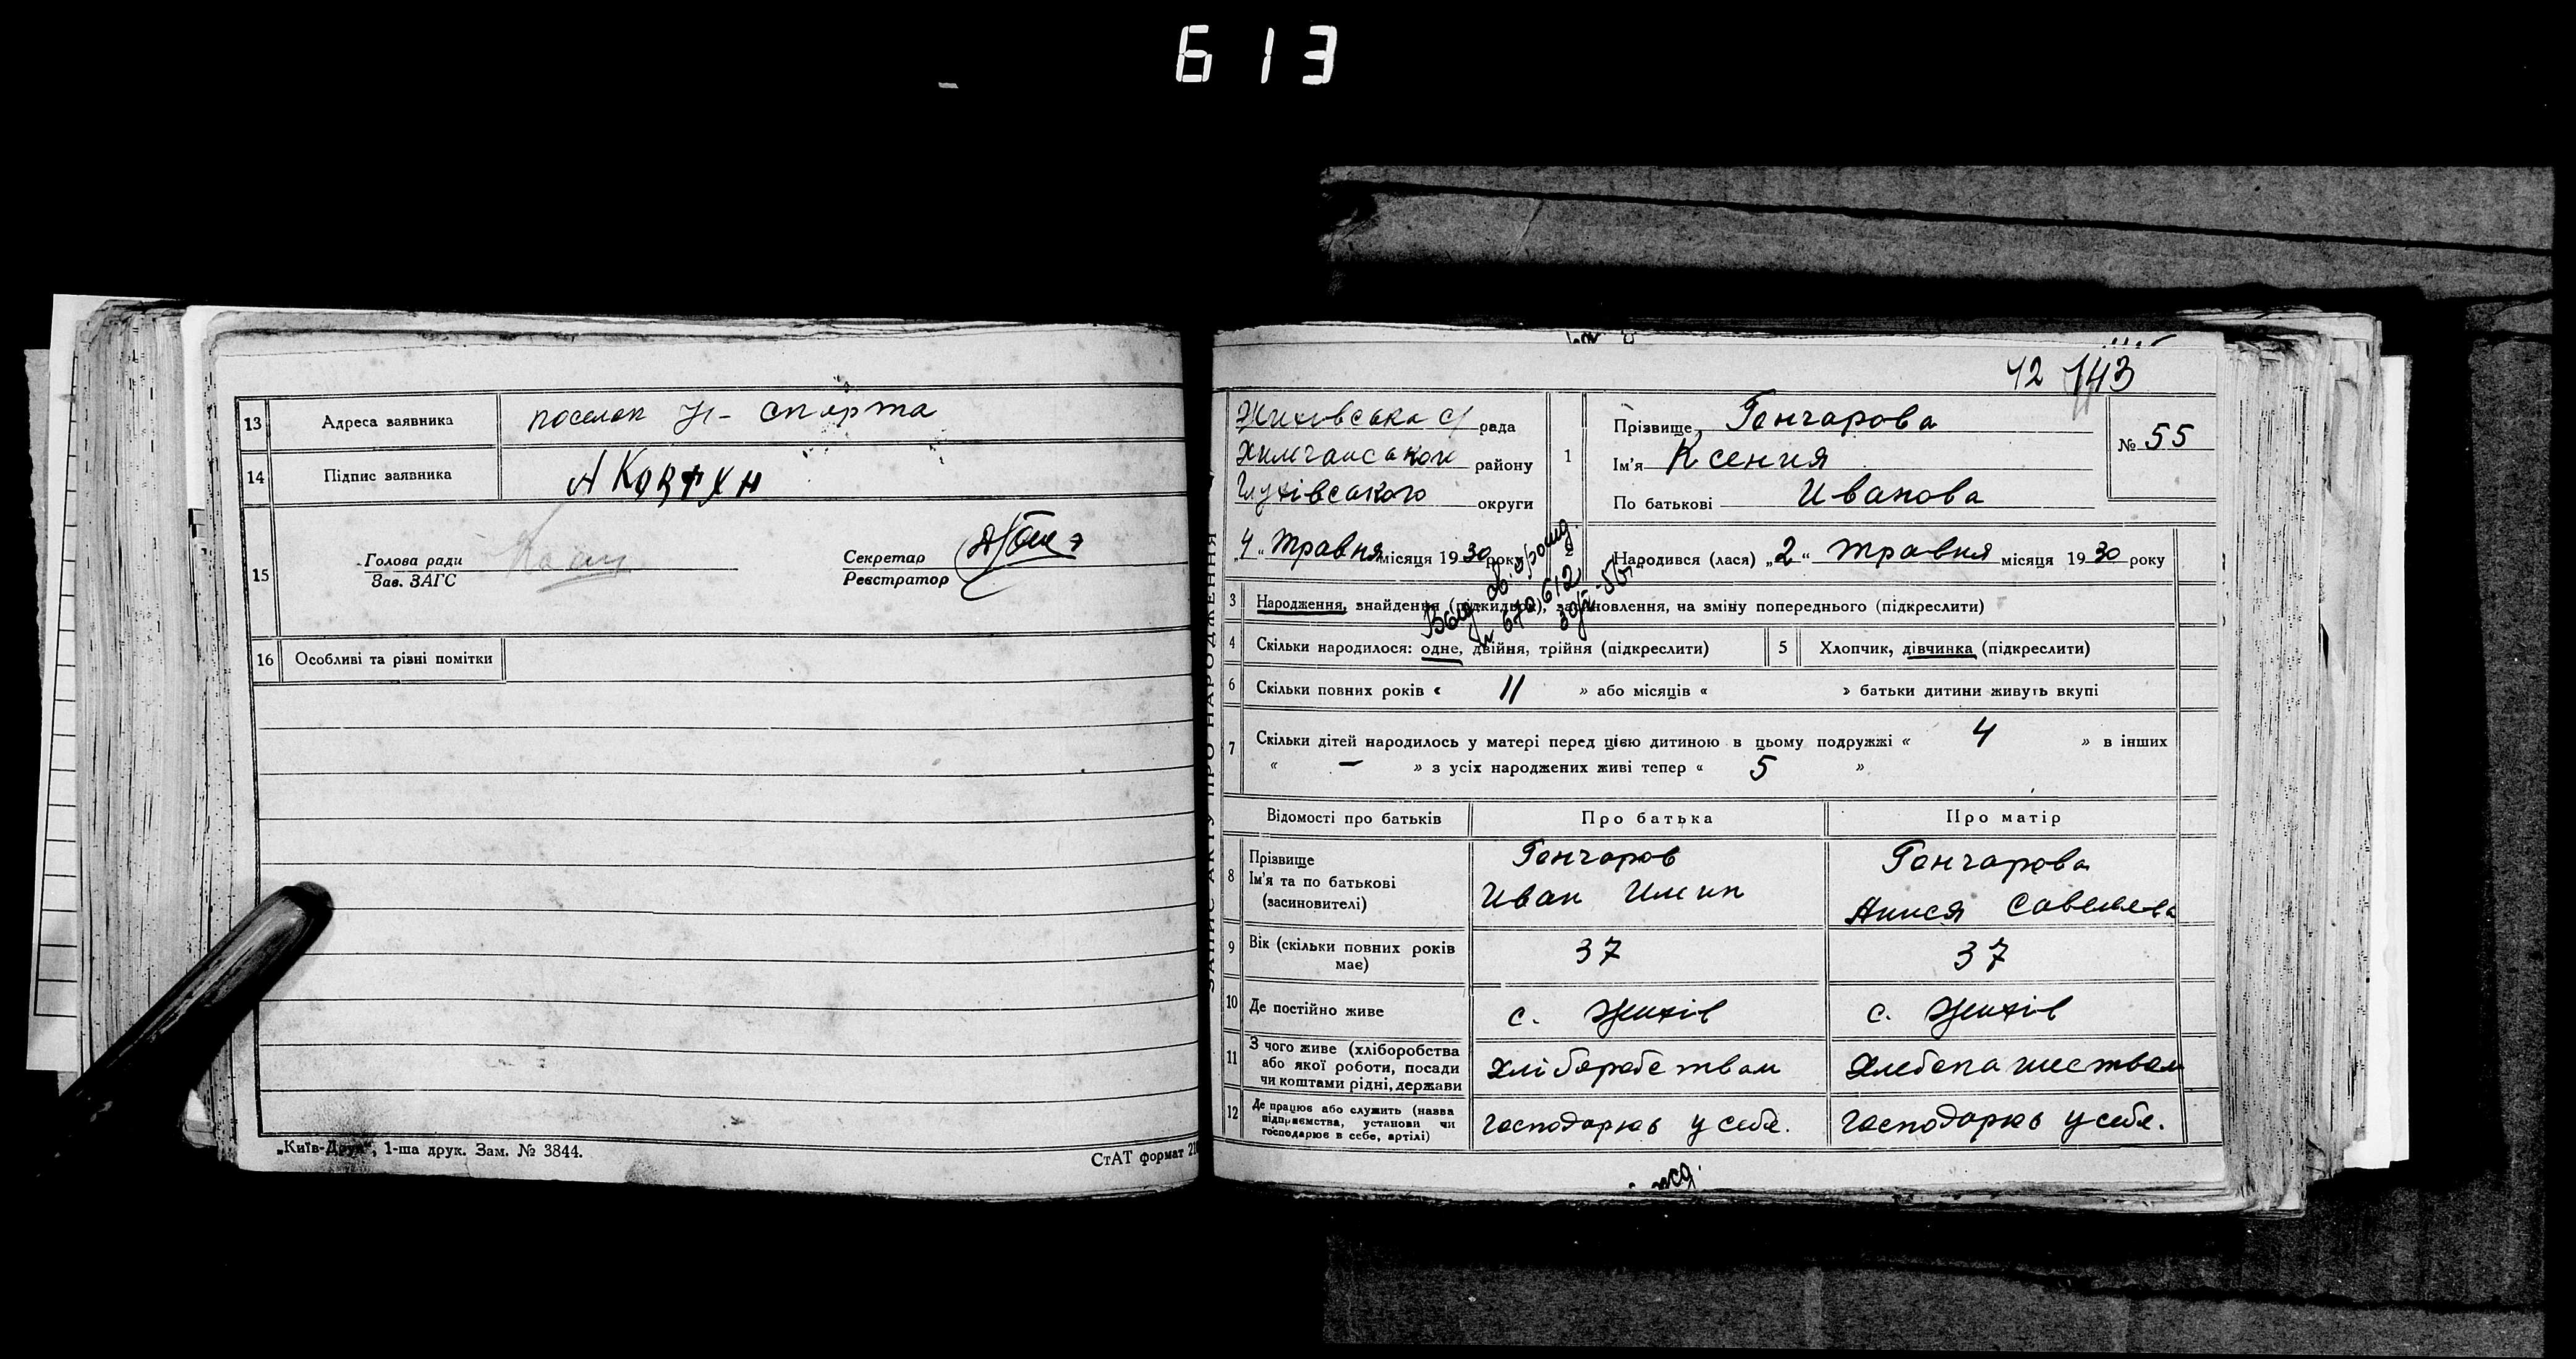 613
13 Адреса заявника поселок Н- спарта
14 Підпис заявника
15 Голова ради
Зав. ЗАГС
Секретар
Реєстратор
16 Особливі та різні помітки
„Київ-Друк“, 1-ша друк. Зам. № 3844.
СтАТ формат
ЗАПИС АКТУ ПРО НАРОДЖЕННЯ
42 143
Жихівська с/ рада
району
Глухівського округи
4 „ травня місяця 1930 року
1 Прізвище Гончарова
Ім'я Ксения
По батькові Иванова
№ 55
2 Народився (лася) „2“ травня місяця 1930 року
3 Народження, знайдення (підкидьок), засиновлення, на зміну попереднього (підкреслити)
4 Скільки народилося: одне, двійня, трійня (підкреслити)
5 Хлопчик, дівчинка (підкреслити)
6 Скільки повних років « 11 » або місяців « » батьки дитини живуть вкупі
7 Скільки дітей народилось у матері перед цією дитиною в цьому подружжі « 4 » в інших
« — » з усіх народжених живі тепер « 5 »
Відомості про батьків Про батька Про матір
8 Прізвище
Ім'я та по батькові
(засиновителі)
Гончаров
Иван
Гончарова
9 Вік (скільки повних років
має)
37 37
10 Де постійно живе с. Жихів с. Жихів
11 З чого живе (хліборобства
або якої роботи, посади
чи коштами рідні, держави
хліборобством хлебопашеством
12 Де працює або служить (назва
підприємства, установи чи
господарює в себе, артілі)
господарює у себе. господарює у себе.